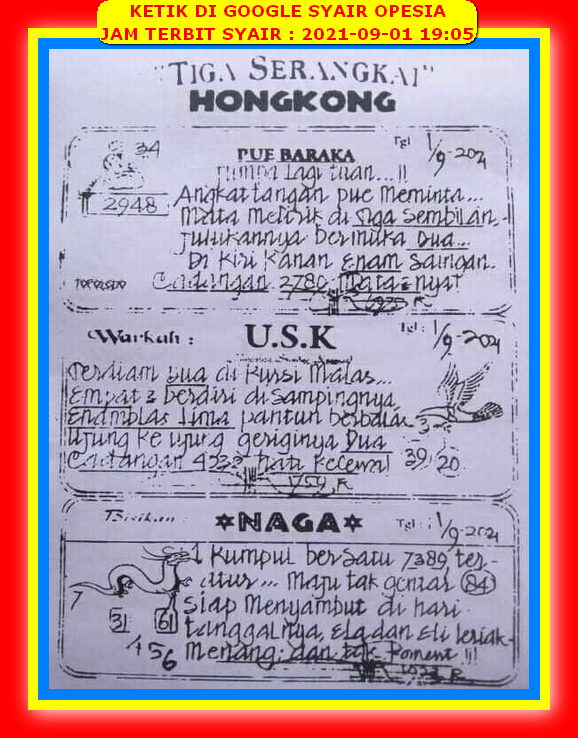 KETIK DI GOOGLE SYAIR OPESIA
JAM TERBIT SYAIR : 2021-09-01 19:05
"TIGA SERANGKAI"
HONGKONG
34
2948
Tgl 1/9-2021
PUE BARAKA
Jumpa lagi tuan...!!
Angkat tangan pue meminta...
Mata melirik di tiga sembilan
Julukannya bermuka Dua...
Di kiri kanan Enam saingan.
TOPOLSPD
Cadangan 2780 Mata²nya!
Warkah :
U.S.K
Tgl : 1/9-2021
Terdiam Dua di kursi Malas...
Empat 2 berdiri disampingnya
Enamblas lima pantun berbalas
Ujung ke ujung geriginya Dua
Cadangan hati kecewa!
3
39 20
1759 R
Bisikan :
NAGA
Tgl : 1/9-2021
1 Kumpul bersatu 7389 ter-
atur... Maju tak gentar 84
siap menyambut di hari
tanggalnya, Ela dan Eli teriak
Menang; dan tak Koment !!!
7
51 61
4 5 6